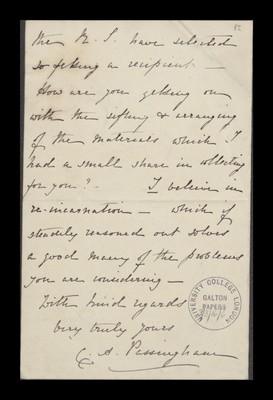 82
the R. S. have selected
so fitting a recipient —
How are you getting on
with the sifting & arranging
of the materials which I
had a small share in collecting
for you? - I believe in
re-incarnation — which if
steadily reasoned out solves
a good many of the problems
you are considering —
With kind regards
Very truly yours
C. A.
UNIVERSITY COLLEGE LONDON
GALTON
PAPERS